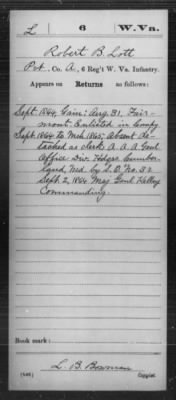 L | 6 | W. Va.
Robert B. Lott
Pvt., Co. A, 6 Reg't W. Va. Infantry.
Appears on Returns as follows:
Sept. 1864, Gain: Aug. 31, Fair-
mont. Enlisted in Compy.
Sept. 1864 to Mch 1865, Absent De-
tached as clerk A. A. A. Genl
Office Div. Hdqrs. Cumber-
land, Md. by S. O. No. 32
Sept. 2, 1864 Maj. Genl. Kelley
Commanding.
Book mark:
L. B. Bowman
(546) Copyist.